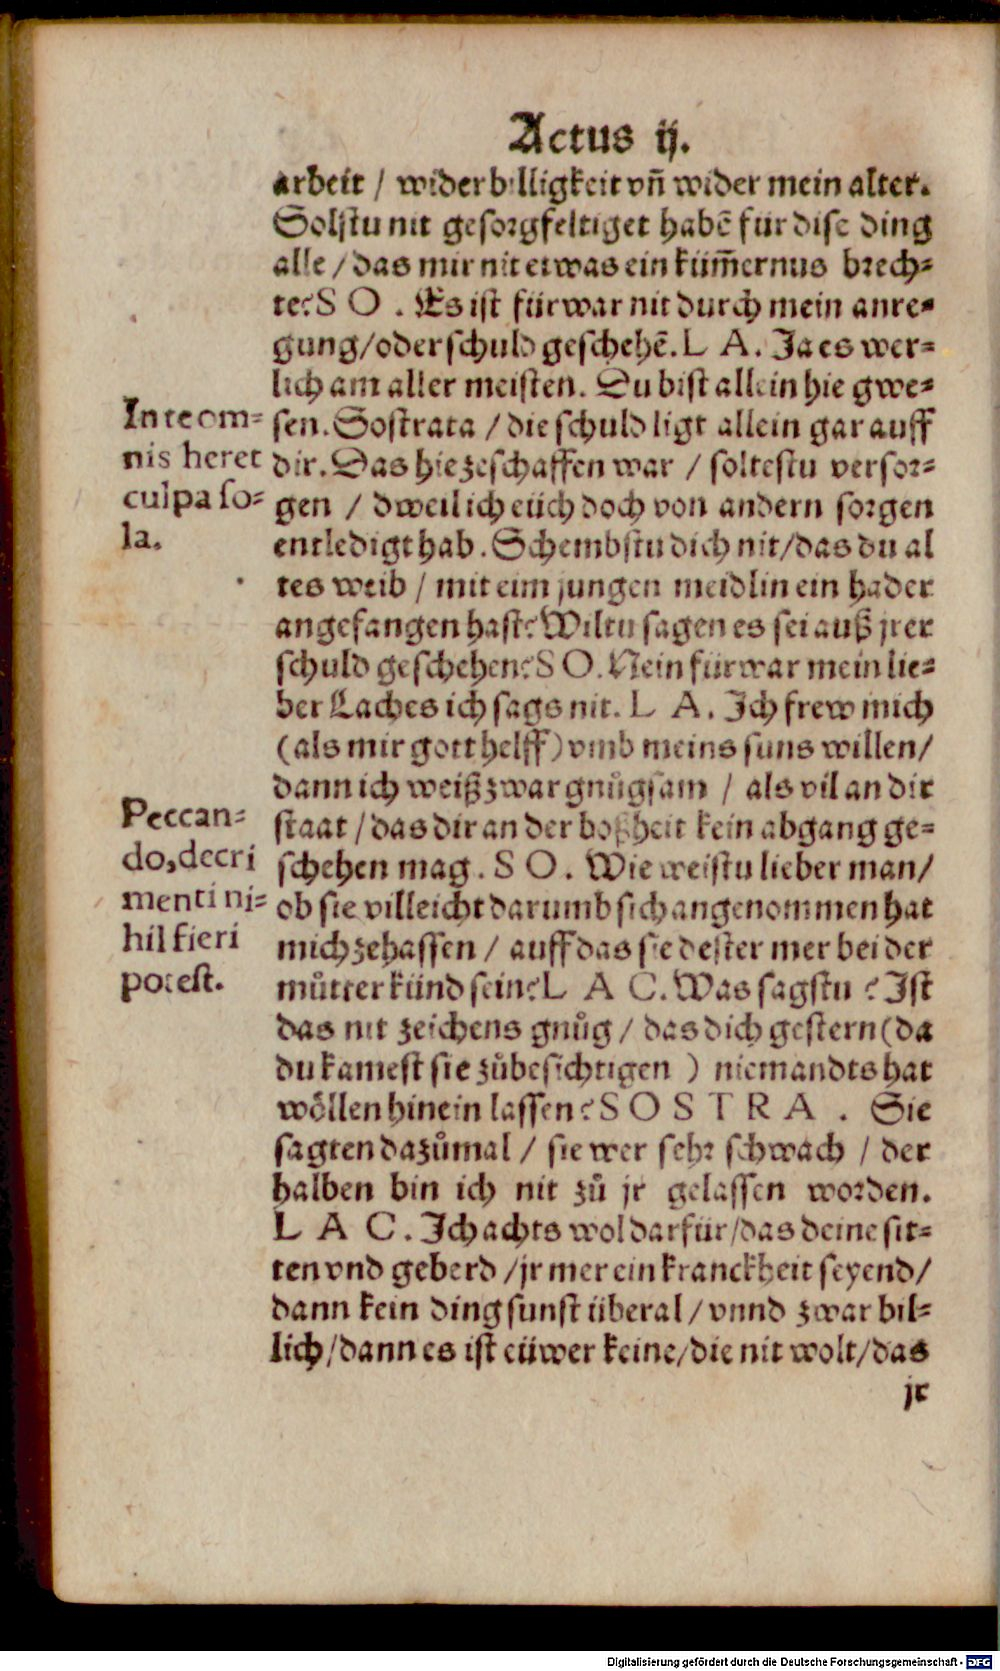 Actus ij.
arbeit / wider billigkeit vñ wider mein alter.
Solstu nit gesorgfeltiget habẽ für dise ding
alle / das mir nit etwas ein küm̃ernus brech⸗
te? S O . Es ist fürwar nit durch mein anre⸗
gung/oder schuld geschehẽ. L A. Ja es wer⸗
lich am aller meisten. Du bist allein hie gwe⸗
sen. Sostrata / die schuld ligt allein gar auff
dir. Das hie zeschaffen war / soltestu versor⸗
gen / dweil ich eüch doch von andern sorgen
entledigt hab. Schembstu dich nit/das du al
tes weib / mit eim jungen meidlin ein hader
angefangen hast? Wiltu sagen es sei auß jrer
schuld geschehen? S O. Nein fürwar mein lie⸗
ber Laches ich sags nit. L A. Ich frew mich
(als mir gott helff) vmb meins suns willen/
dann ich weiß zwar gnůgsam / als vil an dir
staat / das dir an der boßheit kein abgang ge⸗
schehen mag. S O. Wie weistu lieber man/
ob sie villeicht darumb sich angenommen hat
mich zehassen / auff das sie dester mer bei der
můtter künd sein? L A C. Was sagstu ? Ist
das nit zeichens gnůg / das dich gestern (da
du kamest sie zůbesichtigen ) niemandts hat
wöllen hinein lassen? S O S T R A . Sie
sagten dazůmal / sie wer sehr schwach / der
halben bin ich nit zů jr gelassen worden.
L A C. Ich achts wol darfür/das deine sit⸗
ten vnd geberd /jr mer ein kranckheit seyend/
dann kein ding sunst überal / vnnd zwar bil⸗
lich/dann es ist eüwer keine/die nit wolt/das
jr
In te om⸗
nis heret
culpa so⸗
la.
Peccan⸗
do,decri
menti ni⸗
hil fieri
potest.
Digitalisierung gefördert durch die Deutsche Forschungsgemeinschaft - DFG